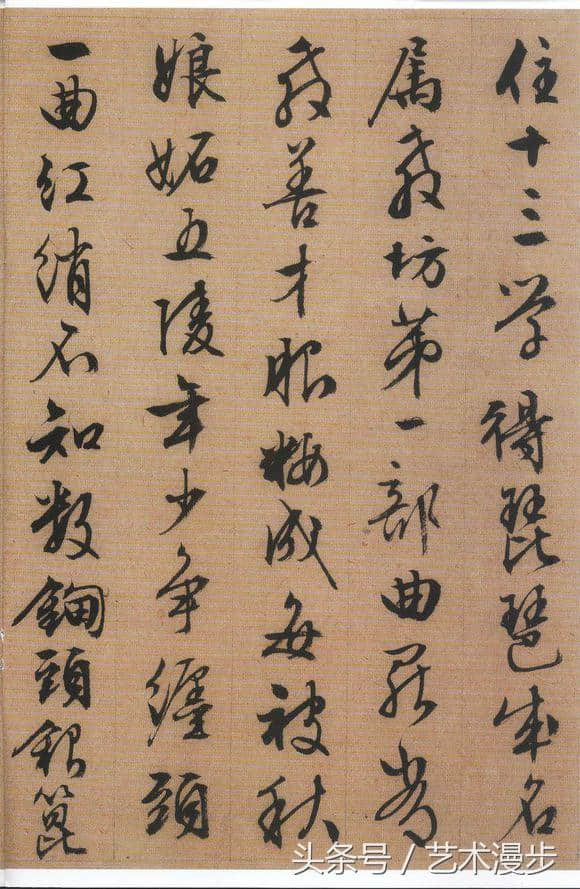 住十三学得琵琶成名
属教坊第一部曲罷常
教善才服粧成每被秋
娘妬五陵年少争纏頭
一曲红绡不知数鈿頭銀篦
头条号 / 艺术漫步